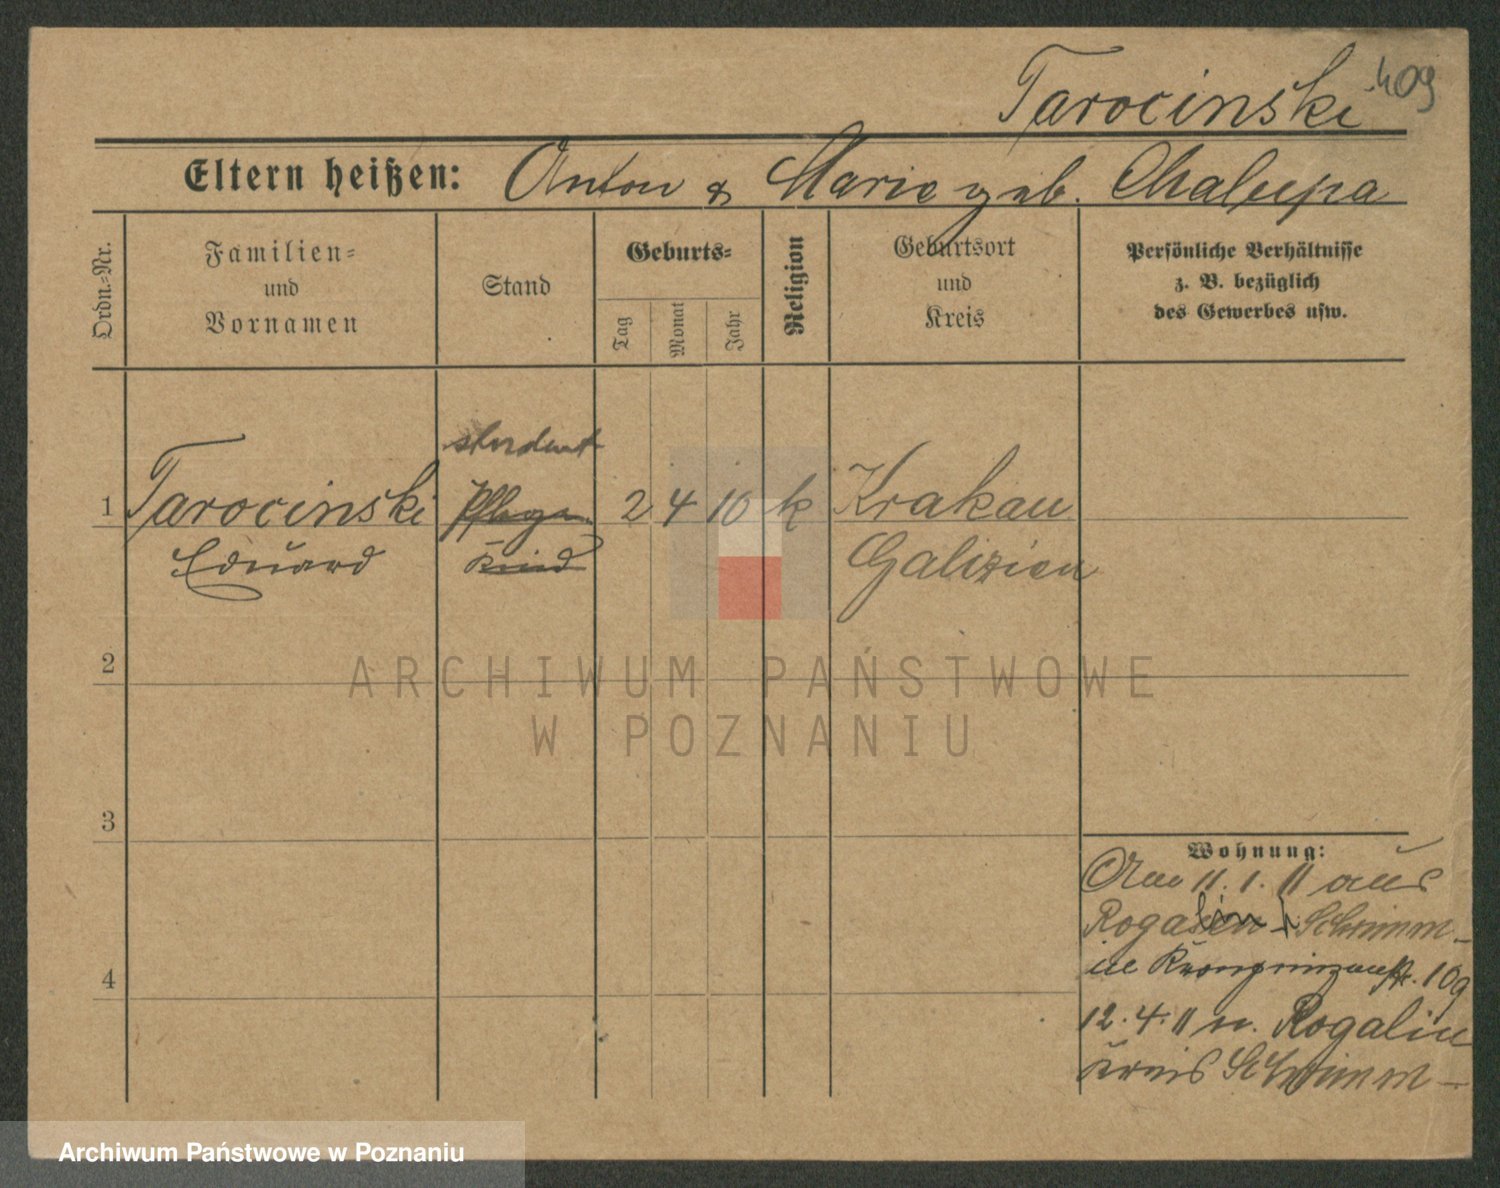 Tarocinski
409
Eltern heißen: Anton & Marie geb. Chalupa
Ordn.=Nr.
Familien=
und
Vornamen
Stand
Geburts=
Tag
Monat
Jahr
Religion
Geburtsort
und
Kreis
Persönliche Verhältnisse
z. B. bezüglich
des Gewerbes usw.
student
1 Tarocinski Pflege 2 4 10 k Krakau
Eduard Kind Galizien
2
ARCHIWUM PAŃSTWOWE
W POZNANIU
3
Wohnung:
Am 11.1.11 aus
Rogalin Schrimm
in Kronprinzenstr. 109
4
12.4.11 n. Rogalin
Kreis Schrimm
Archiwum Państwowe w Poznaniu